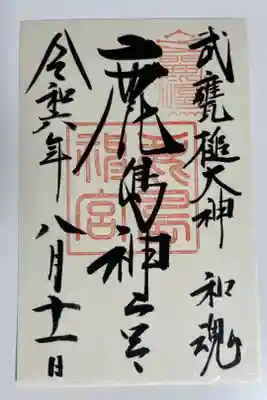 武甕槌大神 和魂
鹿島神宮
令和六年 八月十一日
鹿島
神宮